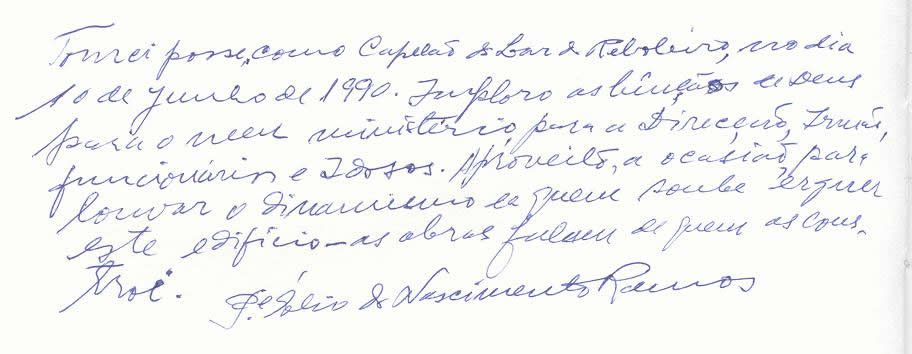 Tomei posse, como Capelão do Lar do Reboleiro, no dia
10 de Junho de 1990. Imploro as bênçãos de Deus
para o meu ministério, para a Direcção, Irmãs,
funcionários e Idosos. Aproveito, a ocasião para
louvar o dinamismo de quem soube erguer
este edifício — as obras falam de quem as cons-
troi.
P.e Júlio do Nascimento Ramos